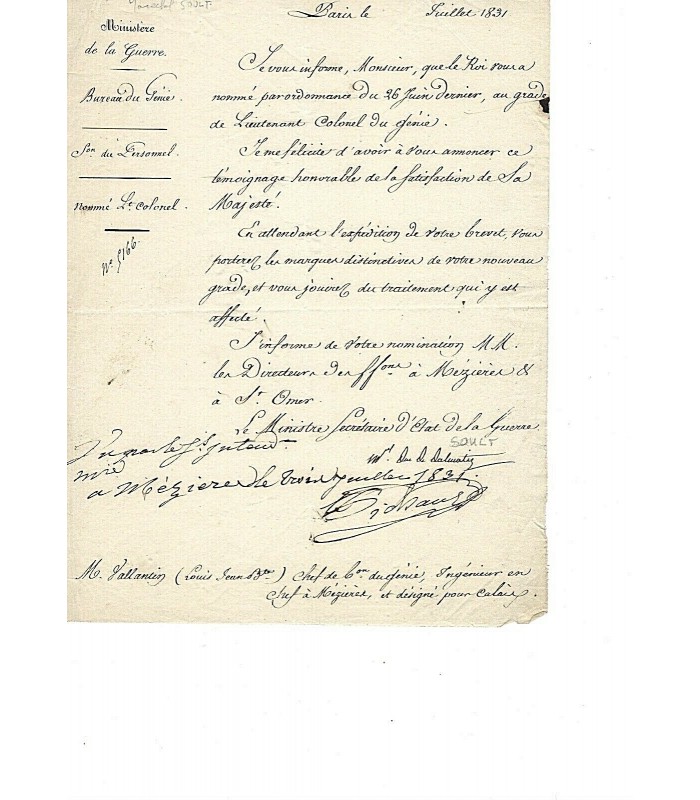 Maréchal SOULT
Paris le Juillet 1831
Ministère
de la Guerre.
Bureau du Génie.
Son. du Personnel.
Nommé Lt. Colonel.
No. 5166.
Je vous informe, Monsieur, que le Roi vous a
nommé par ordonnance du 26 Juin dernier, au grade
de Lieutenant Colonel du génie.
Je me félicite d'avoir à vous annoncer ce
témoignage honorable de la satisfaction de Sa
Majesté.
En attendant l'expédition de votre brevet, vous
porterez les marques distinctives de votre nouveau
grade, et vous jouirez du traitement qui y est
affecté.
J'informe de votre nomination MM.
les Directeurs des ffons à Mézières &
à St. Omer.
Le Ministre Secrétaire d'Etat de la Guerre
SOULT
Mal Duc de Dalmatie
Vu par le Ss Intend
mre
a Mézieres le trois juillet 1831
M. Vallantin (Louis Jean Bte.) Chef de bon. du Génie, Ingénieur en
chef à Mézières, et désigné pour Calais.